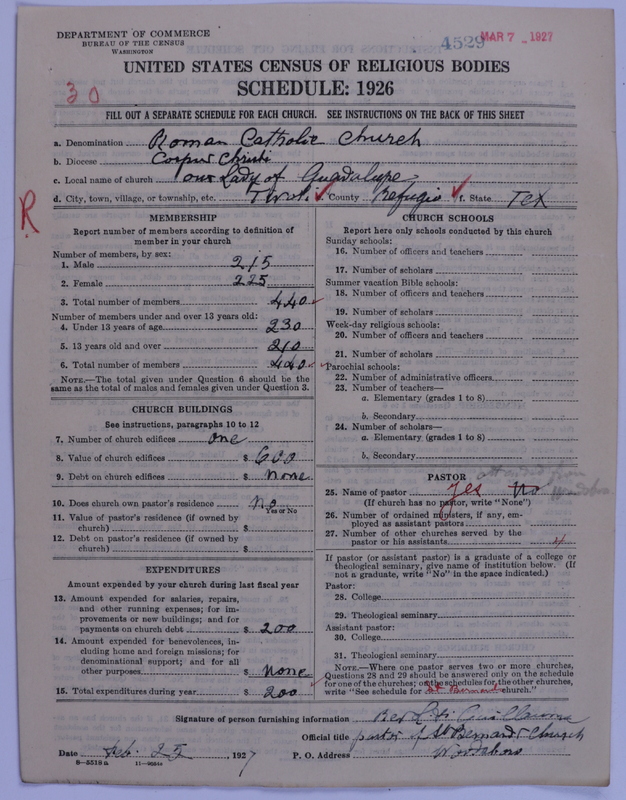 DEPARTMENT OF COMMERCE
BUREAU OF THE CENSUS
WASHINGTON
4529
MAR 7 - 1927
UNITED STATES CENSUS OF RELIGIOUS BODIES
SCHEDULE: 1926
30
FILL OUT A SEPARATE SCHEDULE FOR EACH CHURCH. SEE INSTRUCTIONS ON THE BACK OF THIS SHEET
a. Denomination Roman Catholic Church
b. Diocese Corpus Christi
c. Local name of church our Lady of Guadalupe
d. City, town, village, or township, etc. Tivoli County Refugio f. State Tex
R
MEMBERSHIP
Report number of members according to definition of
member in your church
Number of members, by sex:
1. Male 215
2. Female 225
3. Total number of members 440
Number of members under and over 13 years old:
4. Under 13 years of age 230
5. 13 years old and over 210
6. Total number of members 440
NOTE.—The total given under Question 6 should be the
same as the total of males and females given under Question 3.
CHURCH BUILDINGS
See instructions, paragraphs 10 to 12
7. Number of church edifices one
8. Value of church edifices $ 600
9. Debt on church edifices $ none
10. Does church own pastor's residence No
Yes or No
11. Value of pastor's residence (if owned by
church) $
12. Debt on pastor's residence (if owned by
church) $
EXPENDITURES
Amount expended by your church during last fiscal year
13. Amount expended for salaries, repairs,
and other running expenses; for im-
provements or new buildings; and for
payments on church debt $ 200
14. Amount expended for benevolences, in-
cluding home and foreign missions; for
denominational support; and for all
other purposes $ none
15. Total expenditures during year $ 200
CHURCH SCHOOLS
Report here only schools conducted by this church
Sunday schools:
16. Number of officers and teachers
17. Number of scholars
Summer vacation Bible schools:
18. Number of officers and teachers
19. Number of scholars
Week-day religious schools:
20. Number of officers and teachers
21. Number of scholars
Parochial schools:
22. Number of administrative officers
23. Number of teachers—
a. Elementary (grades 1 to 8)
b. Secondary
24. Number of scholars—
a. Elementary (grades 1 to 8)
b. Secondary
PASTOR
25. Name of pastor yes No
(If church has no pastor, write "None")
26. Number of ordained ministers, if any, em-
ployed as assistant pastors
27. Number of other churches served by the
pastor or his assistants 4
If pastor (or assistant pastor) is a graduate of a college or
theological seminary, give name of institution below. (If
not a graduate, write "No" in the space indicated.)
Pastor:
28. College
29. Theological seminary
Assistant pastor:
30. College
31. Theological seminary
NOTE.—Where one pastor serves two or more churches,
Questions 28 and 29 should be answered only on the schedule
for one of the churches; on the schedules for the other churches,
write "See schedule for St Bernard church."
Signature of person furnishing information
Official title pastor of St Bernard's Church
Date Feb. 25, 1927 P. O. Address
8—5518 a